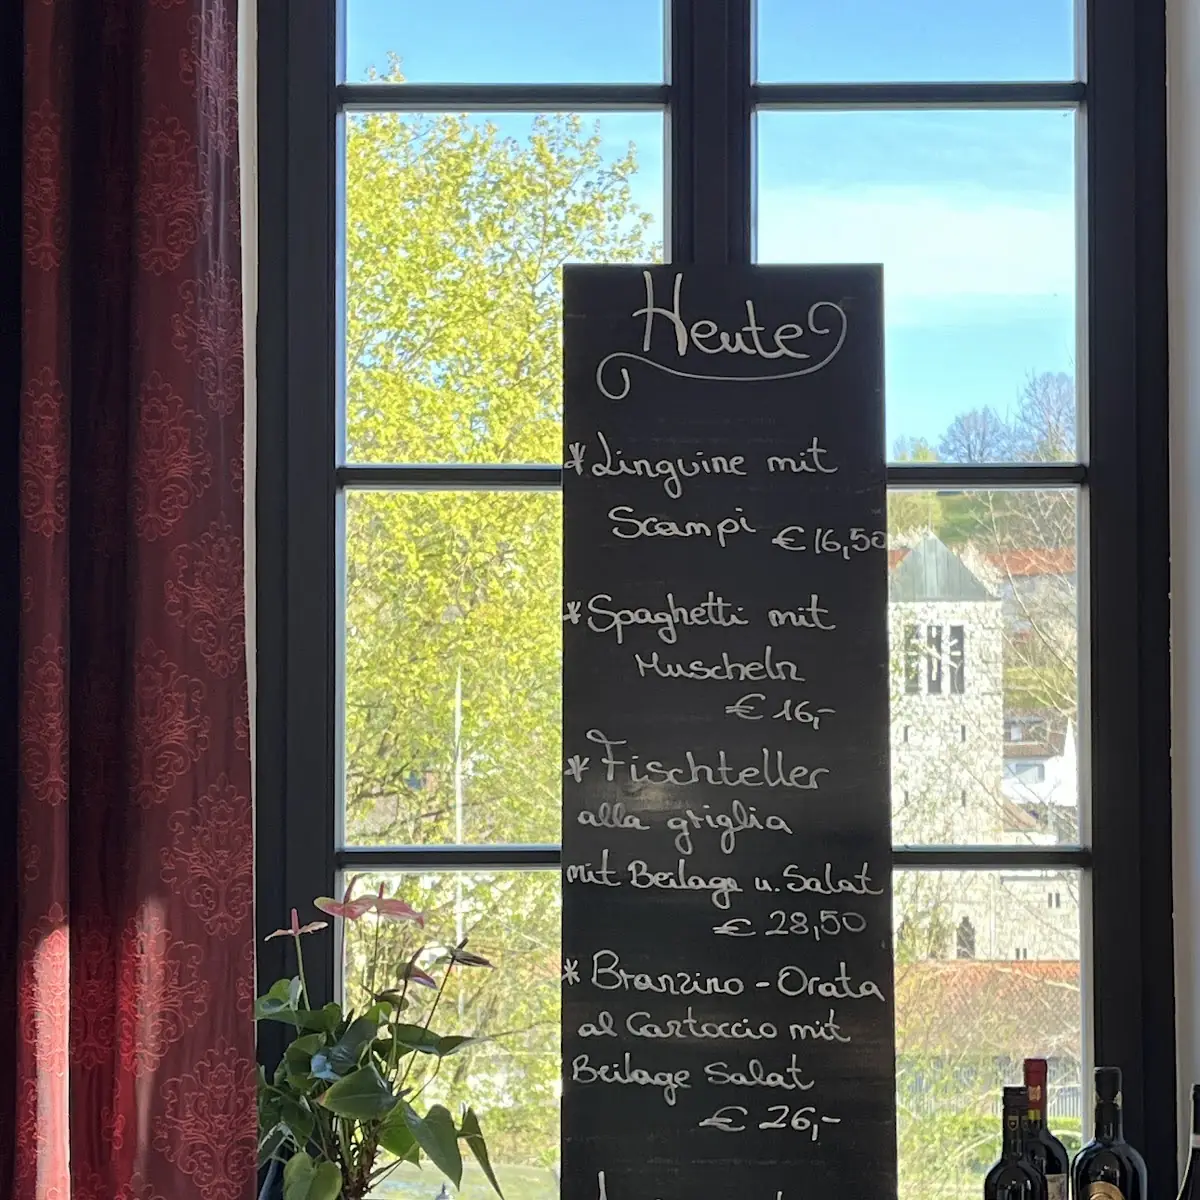 Heute
*Linguine mit
Scampi €16,50
*Spaghetti mit
Muscheln
€ 16,-
*Fischteller
alla griglia
mit Beilage u. Salat
€ 28,50
*Branzino - Orata
al Cartoccio mit
Beilage Salat
€ 26,-